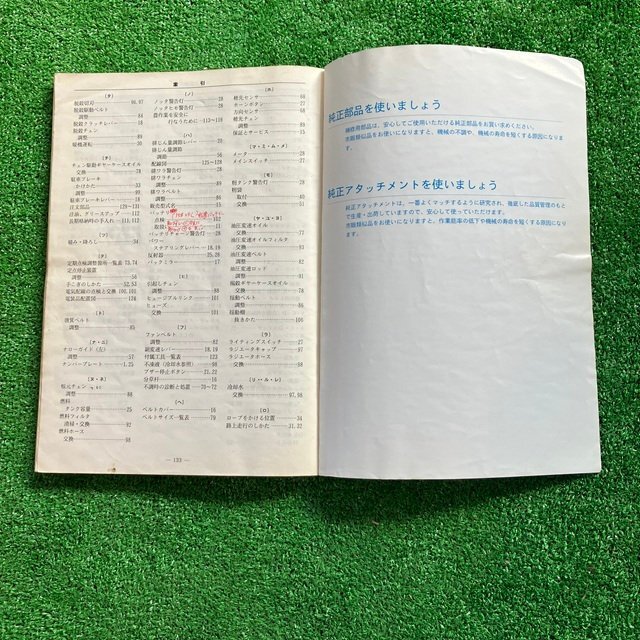 索引
(タ)
脱穀切刃 96,97
脱穀駆動ベルト
調整 84
脱穀クラッチレバー 18
脱穀チェン
調整 89
暖機運転 30
(チ)
チェン駆動ギヤーケースオイル
交換 78
駐車ブレーキ
かけかた 33
調整 80
駐車ブレーキレバー 18
注文部品 129~131
注油、グリースアップ 112
長期格納時の手入れ 111,112
(ツ)
積み・降ろし 34
(テ)
定期点検調整箇所一覧表 73,74
定点停止装置
調整 56
手こぎのしかた 52,53
電気配線の点検と交換 100,101
電装品配置図 124
(ト)
搬送ベルト
調整 85
(ナ・ニ)
ナローガイド(左)
調整 57
ナンバープレート 1,25
(ヌ・ネ)
根元チェン
調整 88
燃料
タンク容量 25
燃料フィルタ
清掃・交換 92
燃料ホース
交換 98
(ノ)
ノッタ警告灯 28
ノッタヒモ警告灯 28
農作業を安全に
行なうために 113~119
(ハ)
排じん量調節レバー 20
排じん量調節
調節 56
配線図 125~128
排ワラ警告灯 28
排ワラチェン
調整 89
排ワラベルト
調整 86
販売型式名 1
バッテリ
点検
取扱い
バッテリチャージ警告灯 28
パワー
ステアリングレバー 18,19
反射器 25,26
バックミラー 17
(ヒ)
引起しチェン
調整 87
ヒュージブルリンク 101
ヒューズ
交換 101
(フ)
ファンベルト
調整 82
副変速レバー 18,19
付属工具一覧表 123
不凍液(冷却水参照) 98
ブザー停止ボタン 21,22
分草杆 16
不調時の診断と処置 70~72
(ヘ)
ベルトカバー 16
ベルトサイズ一覧表 79
— 133 —
(ホ)
穂先センサー 68
ホーンボタン 27
方向センサー 68
穂先チェン
調整 90
保証とサービス 15
(マ・ミ・ム・メ)
メータ 28
メインスイッチ 24
(モ)
籾タンク警告灯 28
籾袋
取付 40
交換 51
(ヤ・ユ・ヨ)
油圧変速オイル
交換 77
油圧変速オイルフィルタ
交換 93
油圧変速ベルト
調整 81
油圧変速ロッド
調整 91
揺動ギヤーケースオイル
交換 78
揺動ベルト
調整 86
揺動棚
抜きかた 106
(ラ)
ライティングスイッチ 27
ラジエータキャップ 97
ラジエータホース
交換 98
(リ・ル・レ)
冷却水
交換 97,98
(ロ)
ロープをかける位置 34
路上走行のしかた 31,32
純正部品を使いましょう
補修用部品は、安心してご使用いただける純正部品をお買い求めください。
市販類似品をお使いになりますと、機械の不調や、機械の寿命を短くする原因になりま
す。
純正アタッチメントを使いましょう
純正アタッチメントは、一番よくマッチするように研究され、徹底した品質管理のもと
で生産・出荷していますので、安心して使っていただけます。
市販類似品をお使いになりますと、作業能率の低下や機械の寿命を短くする原因になり
ます。